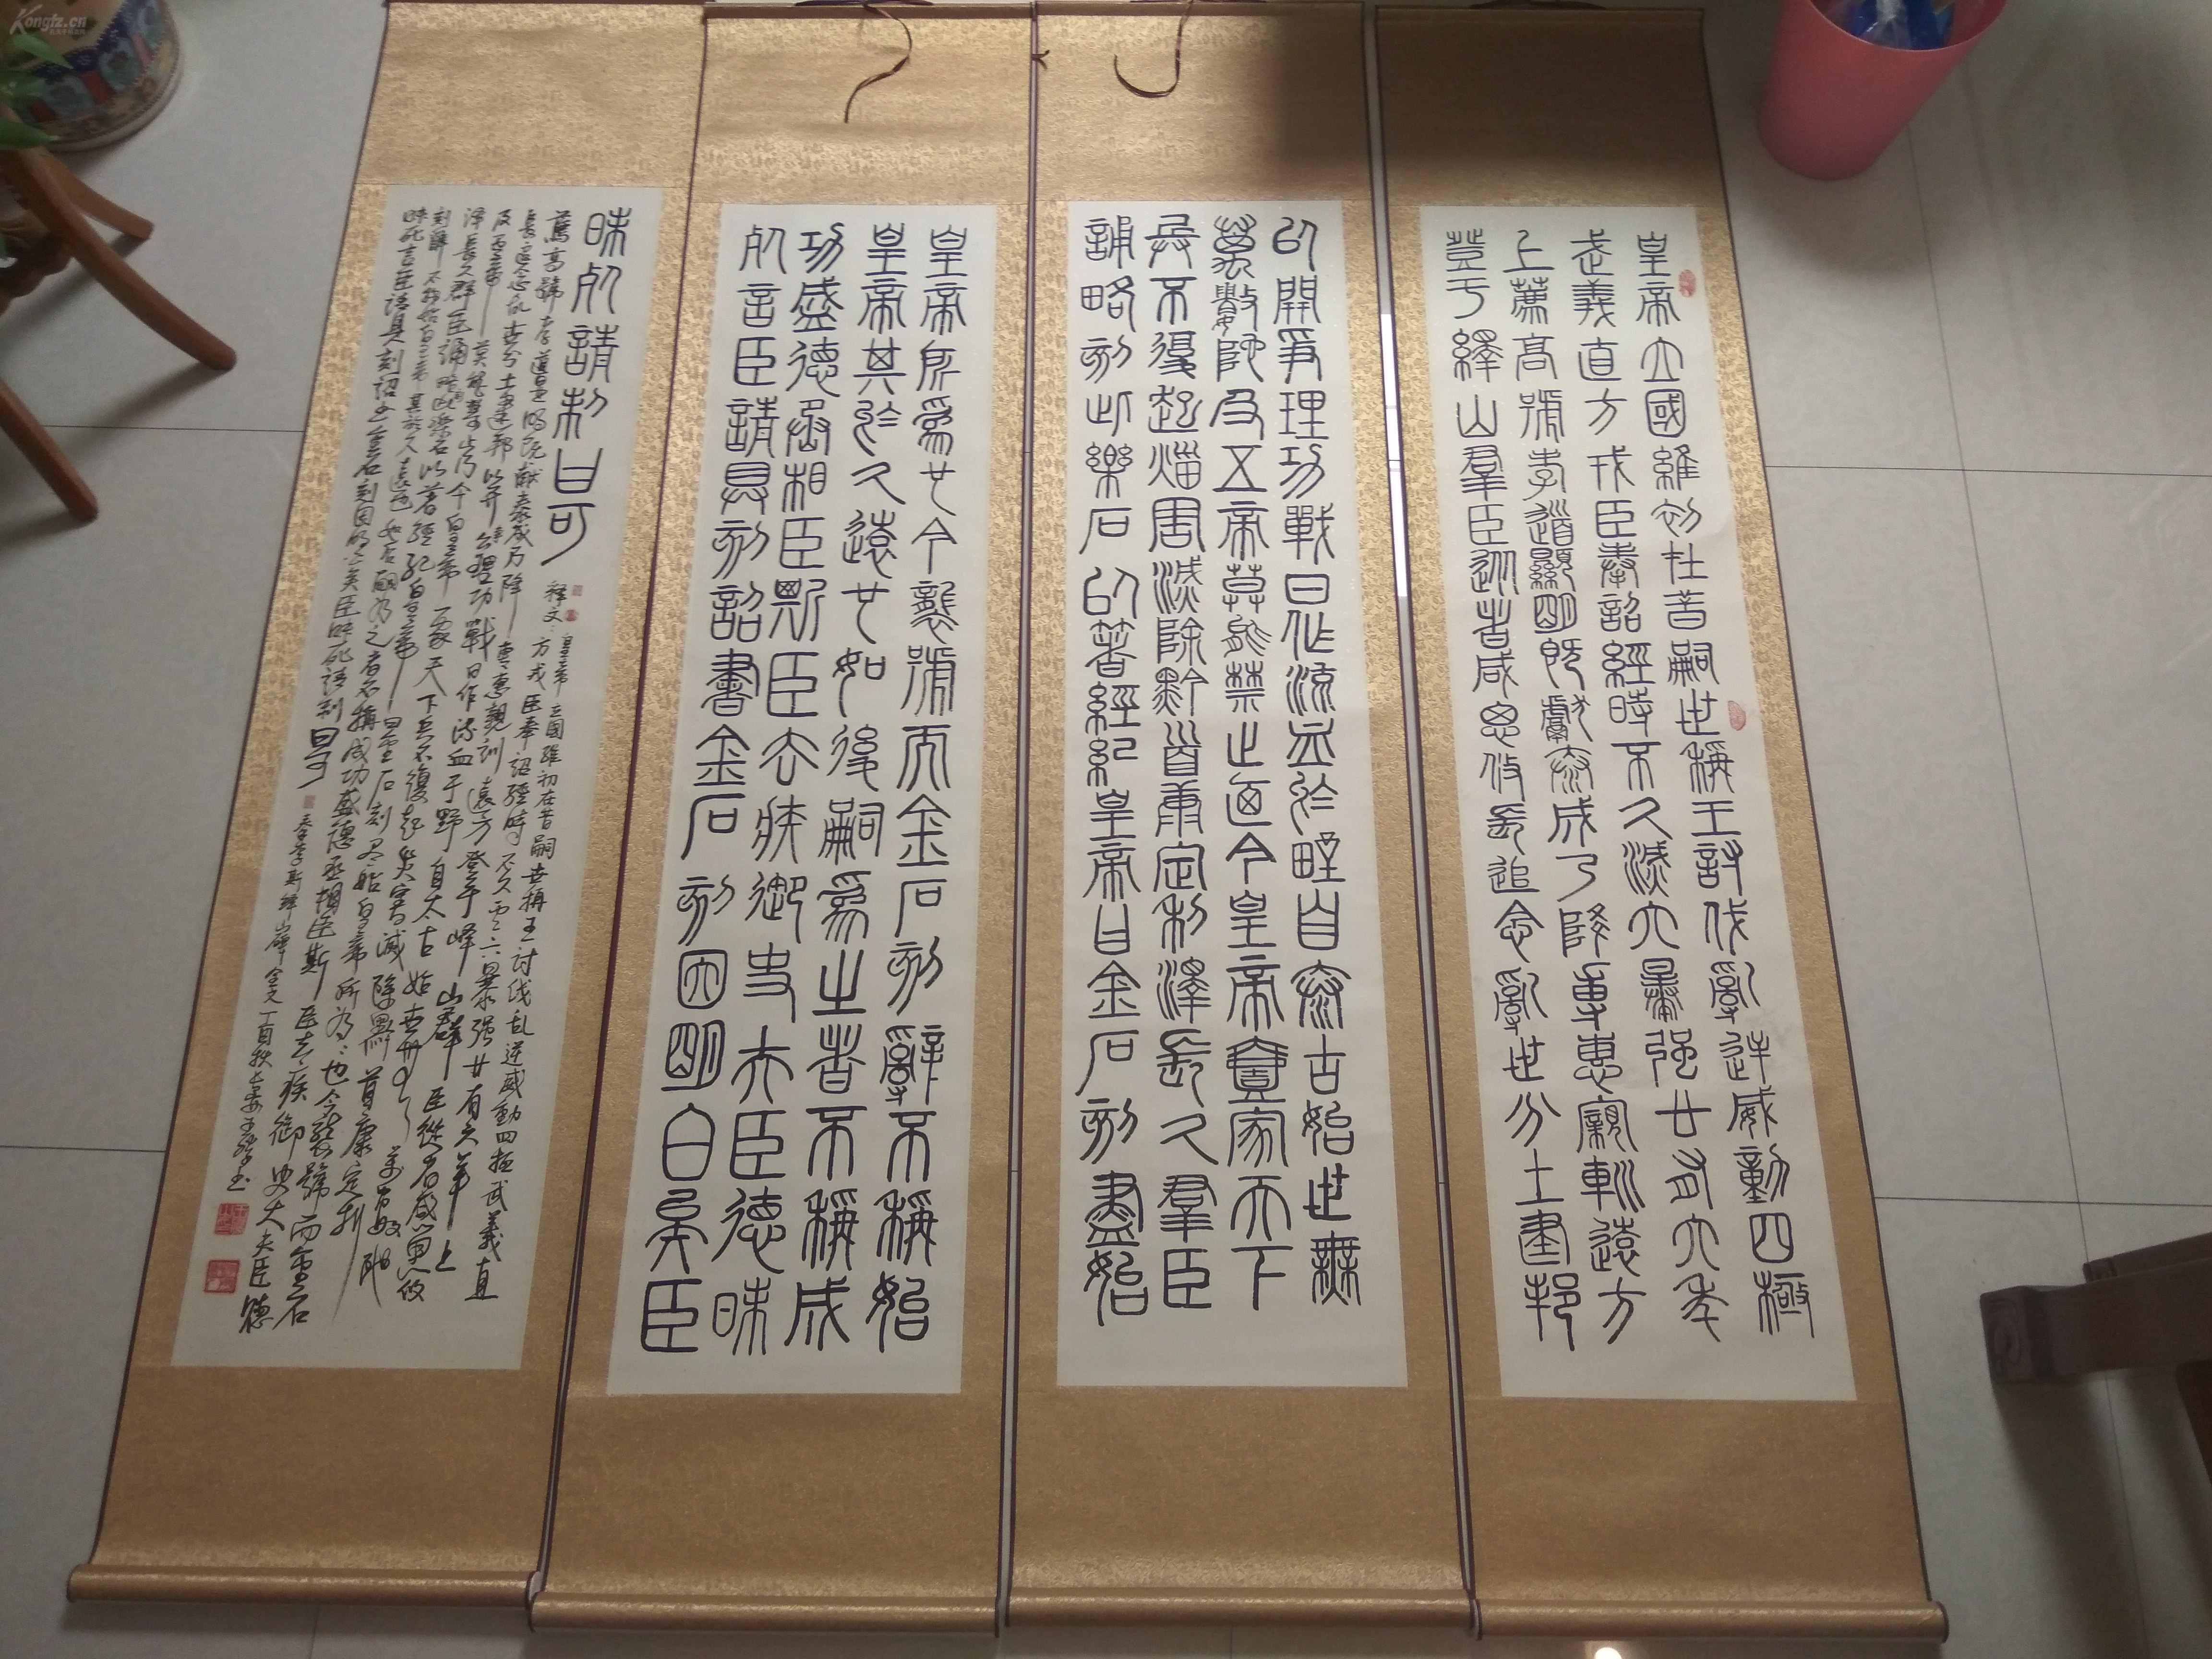 皇帝立國維初在昔嗣世稱王討伐亂逆威動四極
武義直方戎臣奉詔經時不久滅六暴强廿有六年
上薦高號孝道顯明既獻泰成乃降專惠親巡遠方
登于繹山羣臣從者咸思攸長追念亂世分土建邦
以開爭理功戰日作流血於野自泰古始世無
萬數陀及五帝莫能禁止廼今皇帝壹家天下
兵不復起烖害滅除黔首康定利澤長久羣臣
誦略刻此樂石以著經紀皇帝曰金石刻盡始
皇帝所爲也今襲號而金石刻辭不稱始
皇帝其於久遠也如後嗣爲之者不稱成
功盛德丞相臣斯臣去疾御史大夫臣德昧
死言臣請具刻詔書金石刻因明白矣臣
昧死請制曰可
释文：皇帝立國維初在昔嗣世稱王討伐乱逆威動四極武義直
方戎臣奉詔經時不久灭六暴强廿有六年上
薦高號孝道显明既献泰成乃降專惠親巡遠方登于峄山群臣從者咸思攸
長追念乱世分土建邦以开争理功戰日作流血于野自太古始世無萬數陀
及五帝莫能禁止乃今皇帝一家天下兵不復起灾害滅除黔首康定利
澤長久群臣誦略刻此樂石以著經紀皇帝曰金石刻尽始皇帝所為也今襲號而金石
刻辭不稱始皇帝其於久遠也如后嗣为之者不稱成功盛德丞相臣斯臣去疾御史大夫臣德
昧死言臣請具刻詔書金石刻因明白矣臣昧死請制曰可
秦李斯峄山碑全文丁酉秋
Kongfz.cn